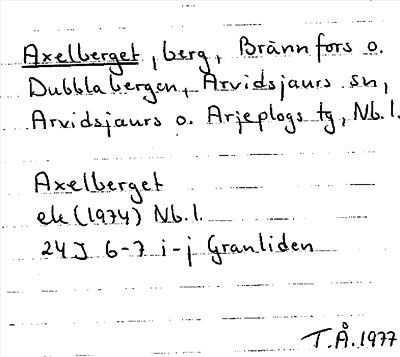 Axelberget, berg, Brännfors o.
Dubblabergen, Arvidsjaurs sn,
Arvidsjaurs o. Arjeplogs tg, Nb.l.
Axelberget
ek (1974) Nb.l.
24J 6-7 i-j Granliden
T.Å. 1977